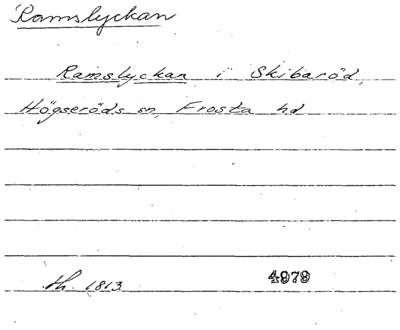 Ramslyckan
Ramslyckan i Skibaröd,
Högseröds sn, Frosta hd
th. 1813 4979